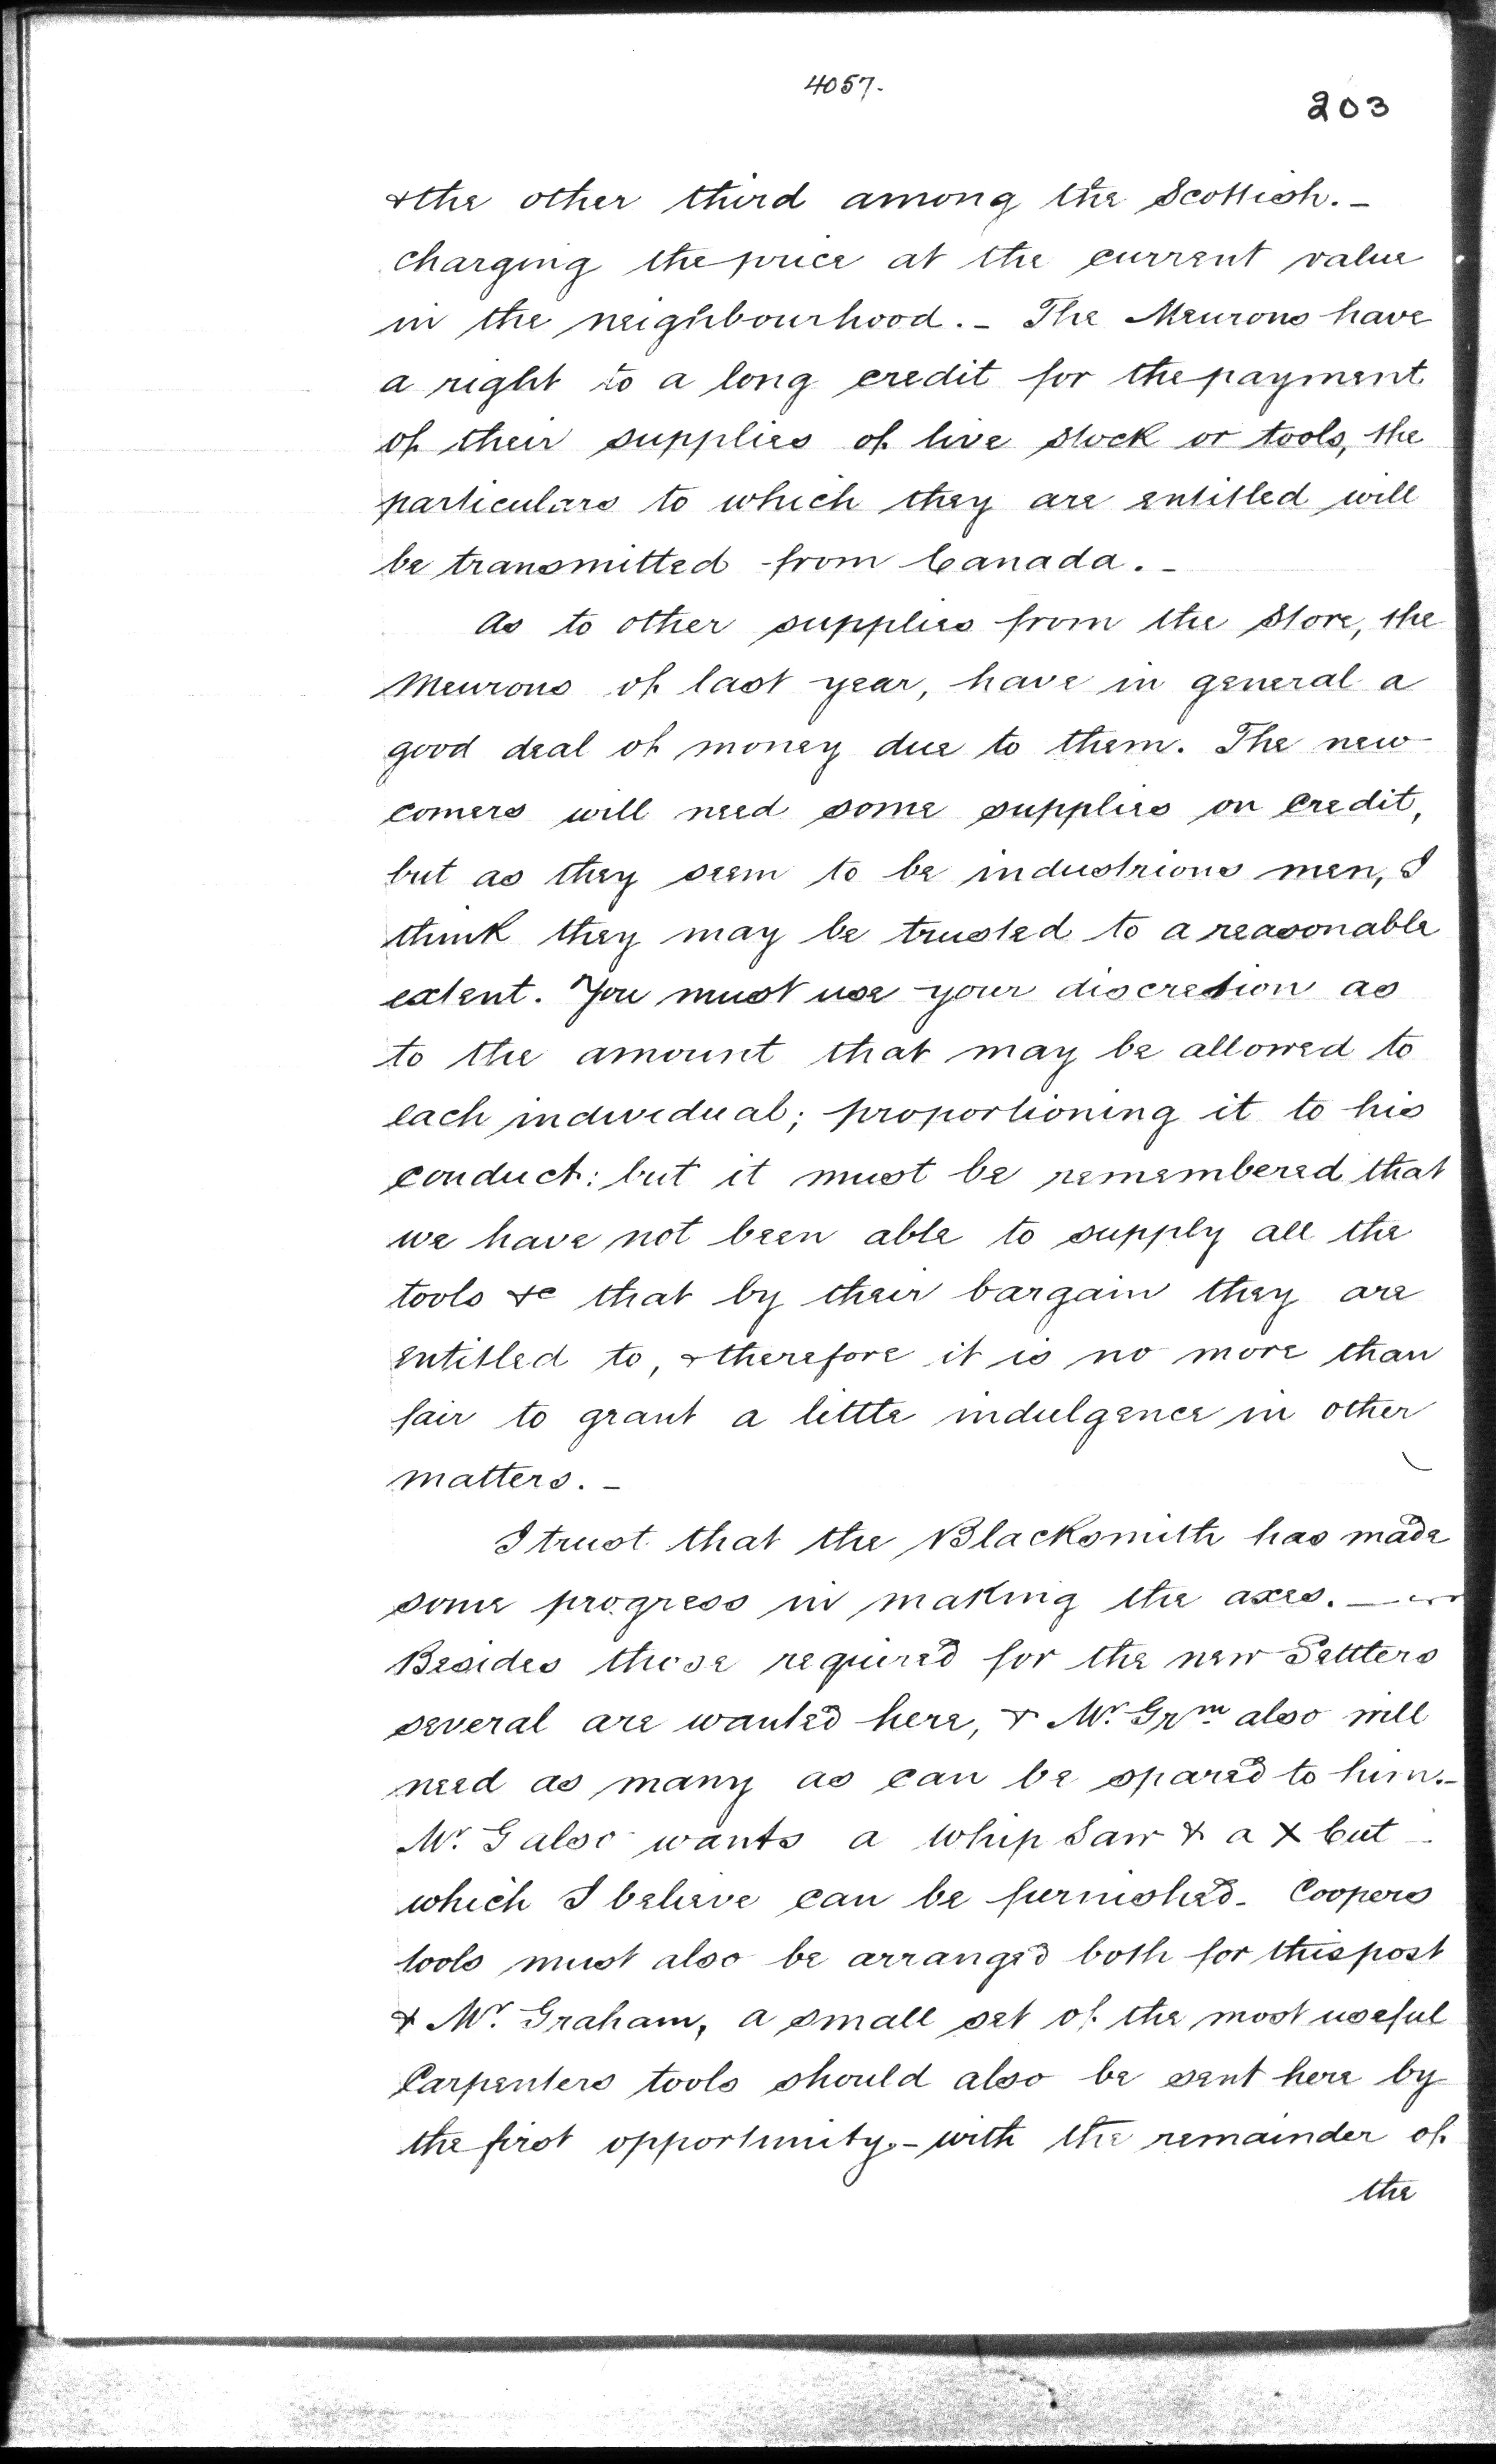 4057.
203
& the other third among the Scottish. –
charging the price at the current value
in the neighbourhood. – The Meurons have
a right to a long credit for the payment
of their supplies of live stock or tools, the
particulars to which they are entitled will
be transmitted from Canada. –
As to other supplies from the Store, the
Meurons of last year, have in general a
good deal of money due to them. The new
comers will need some supplies on credit,
but as they seem to be industrious men, I
think they may be trusted to a reasonable
extent. You must use your discretion as
to the amount that may be allowed to
each individual; proportioning it to his
conduct: but it must be remembered that
we have not been able to supply all the
tools &c that by their bargain they are
entitled to, & therefore it is no more than
fair to grant a little indulgence in other
matters. –
I trust that the Blacksmith has made
some progress in making the axes. —
Besides those requir'd for the new Settlers
several are wanted here, & Mr. Grm also will
need as many as can be spared to him. –
Mr. G also wants a Whip Saw & a X Cut –
which I believe can be furnished – Coopers
tools must also be arranged both for this post
& Mr. Graham, a small set of the most useful
Carpenters tools should also be sent here by
the first opportunity. – with the remainder of
the